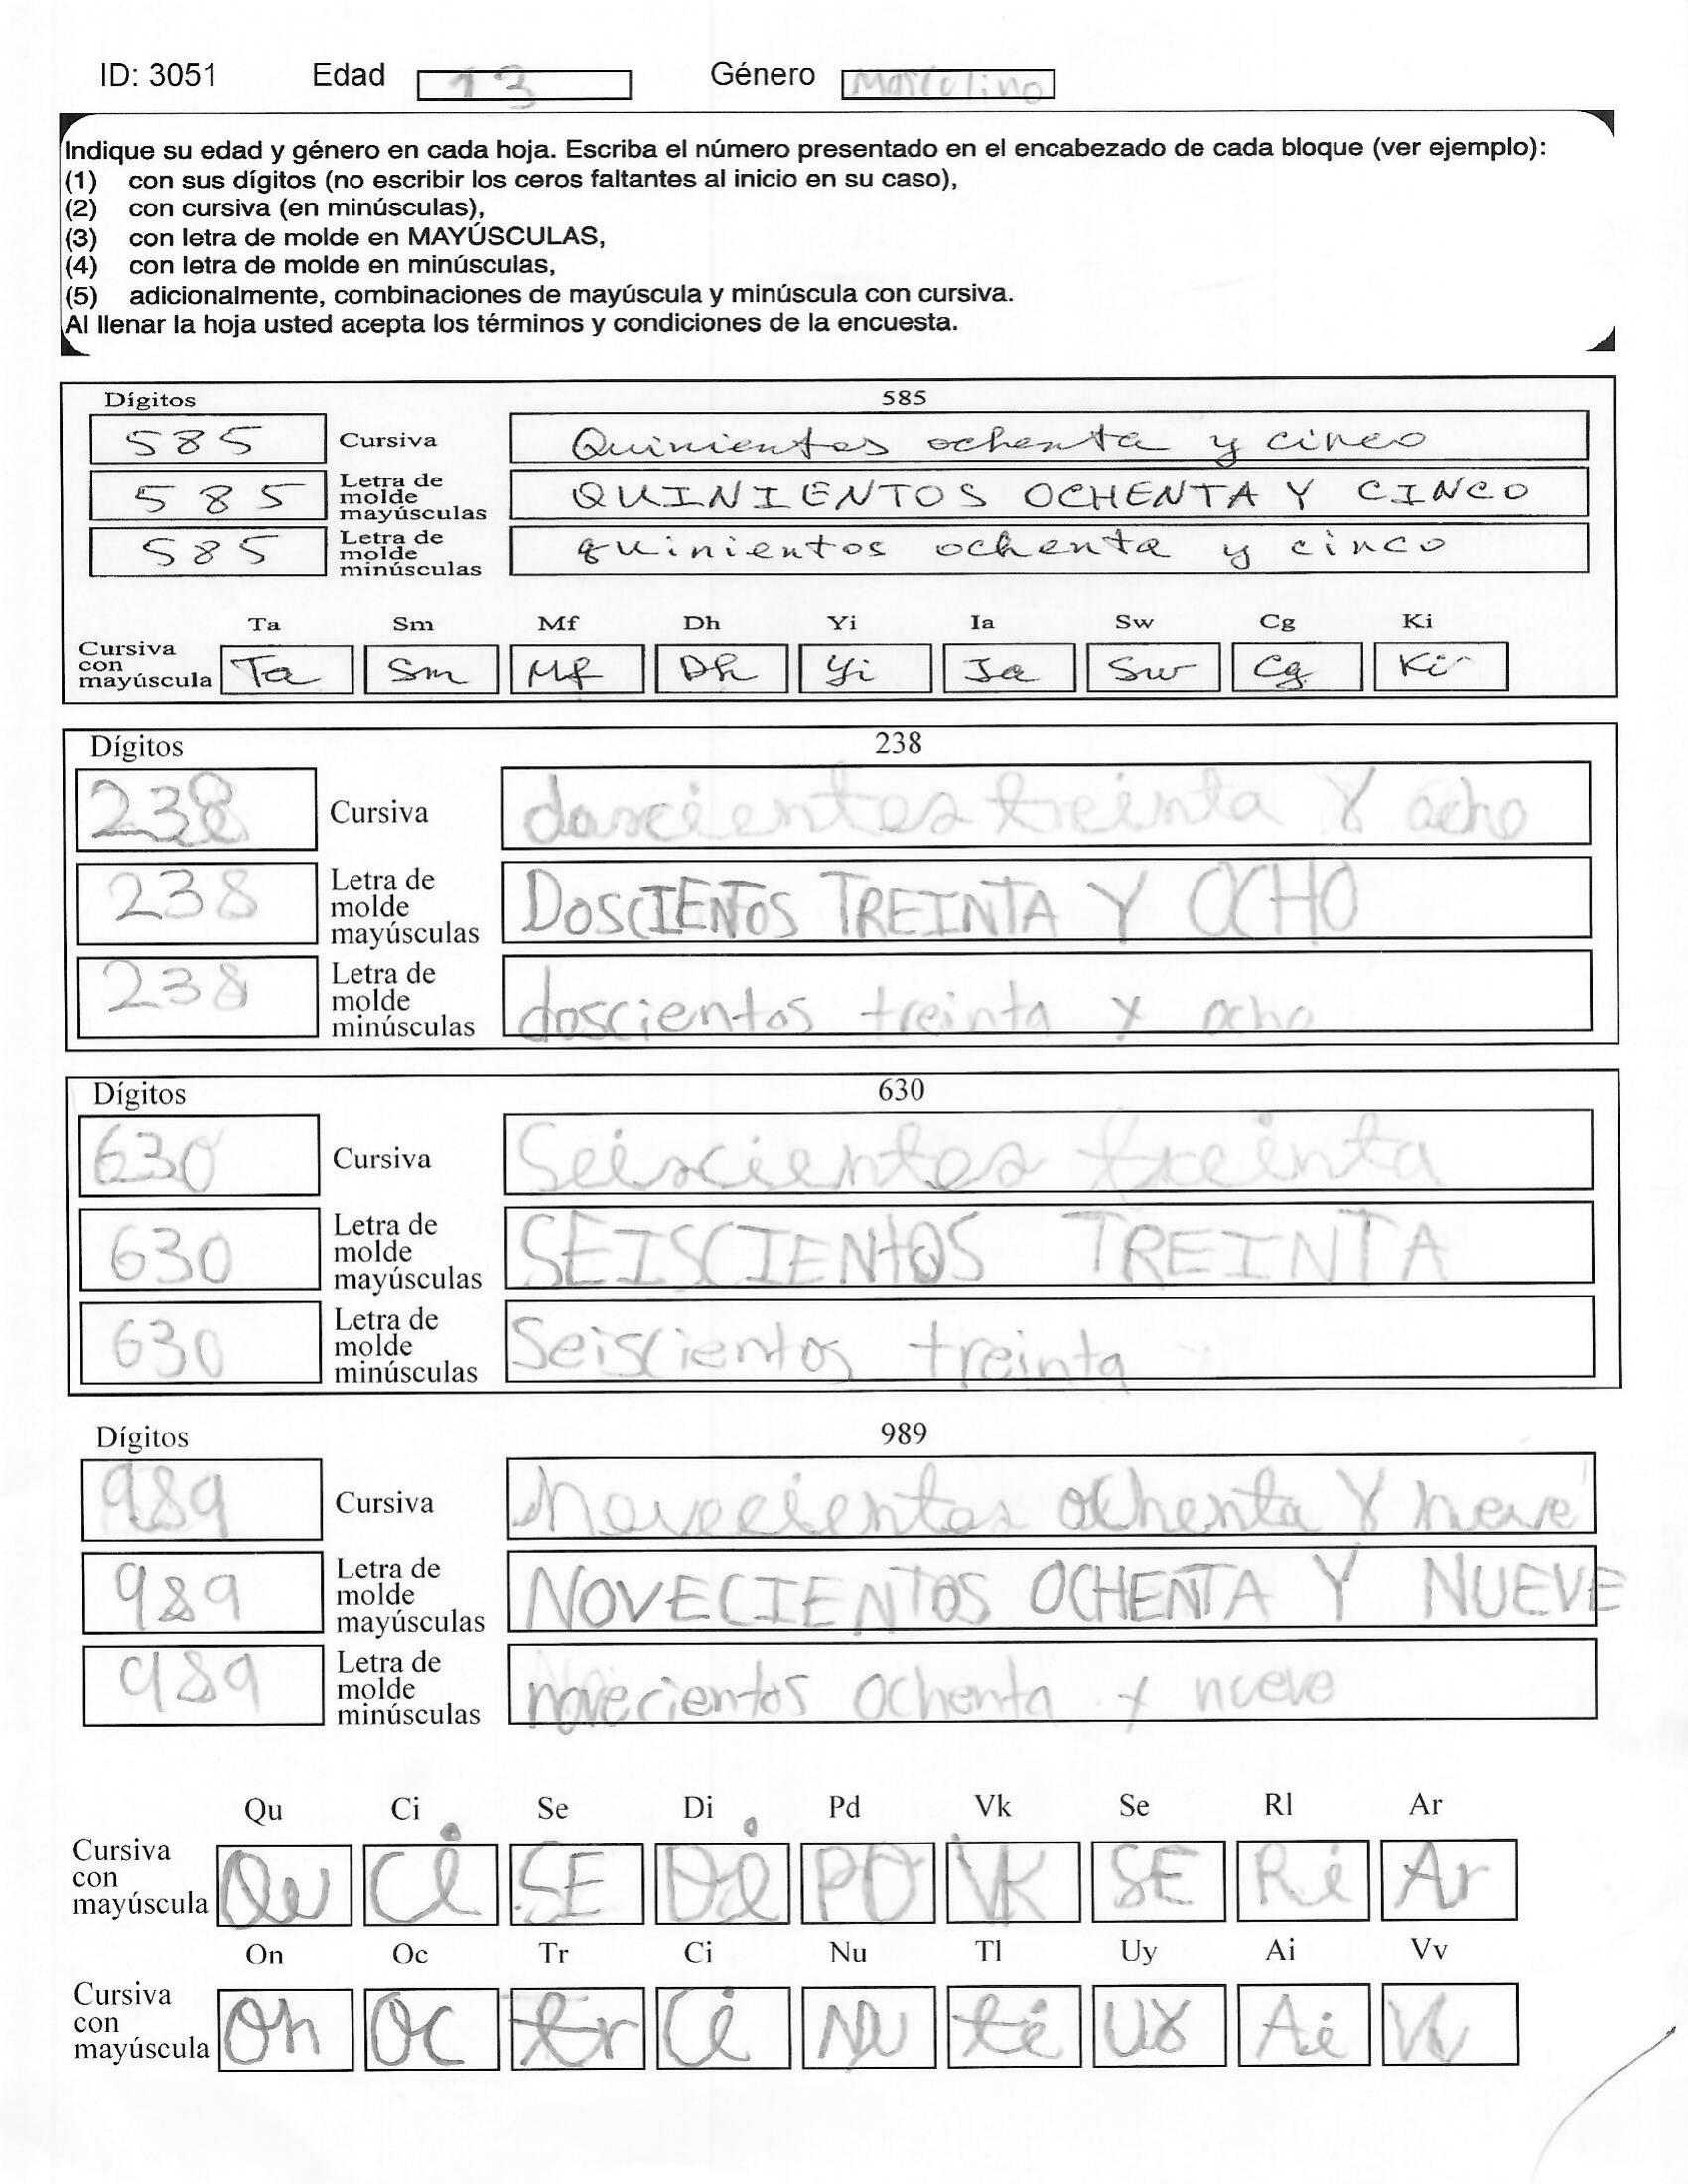 ID: 3051 Edad 13 Género Masculino
Indique su edad y género en cada hoja. Escriba el número presentado en el encabezado de cada bloque (ver ejemplo):
(1) con sus dígitos (no escribir los ceros faltantes al inicio en su caso),
(2) con cursiva (en minúsculas),
(3) con letra de molde en MAYÚSCULAS,
(4) con letra de molde en minúsculas,
(5) adicionalmente, combinaciones de mayúscula y minúscula con cursiva.
Al llenar la hoja usted acepta los términos y condiciones de la encuesta.
Dígitos 585
585 Cursiva Quinientos ochenta y cinco
585 Letra de molde mayúsculas QUINIENTOS OCHENTA Y CINCO
585 Letra de molde minúsculas quinientos ochenta y cinco
Ta Sm Mf Dh Yi Ia Sw Cg Ki
Cursiva con mayúscula Ta Sm Mf Dh Yi Ia Sw Cg Ki
Dígitos 238
238 Cursiva doscientos treinta Y ocho
238 Letra de molde mayúsculas DOSCIENTOS TREINTA Y OCHO
238 Letra de molde minúsculas doscientos treinta y ocho
Dígitos 630
630 Cursiva Seiscientos treinta
630 Letra de molde mayúsculas SEISCIENtOS TREINTA
630 Letra de molde minúsculas Seiscientos treinta
Dígitos 989
989 Cursiva novecientos ochenta Y neve
989 Letra de molde mayúsculas NOVECIENTOS OCHENTA Y NUEVE
989 Letra de molde minúsculas novecientos ochenta y nueve
Qu Ci Se Di Pd Vk Se Rl Ar
Cursiva con mayúscula Qu Ci SE Di PD VK SE Ri Ar
On Oc Tr Ci Nu Tl Uy Ai Vv
Cursiva con mayúscula On OC tr Ci NU ti UY Ai Vv